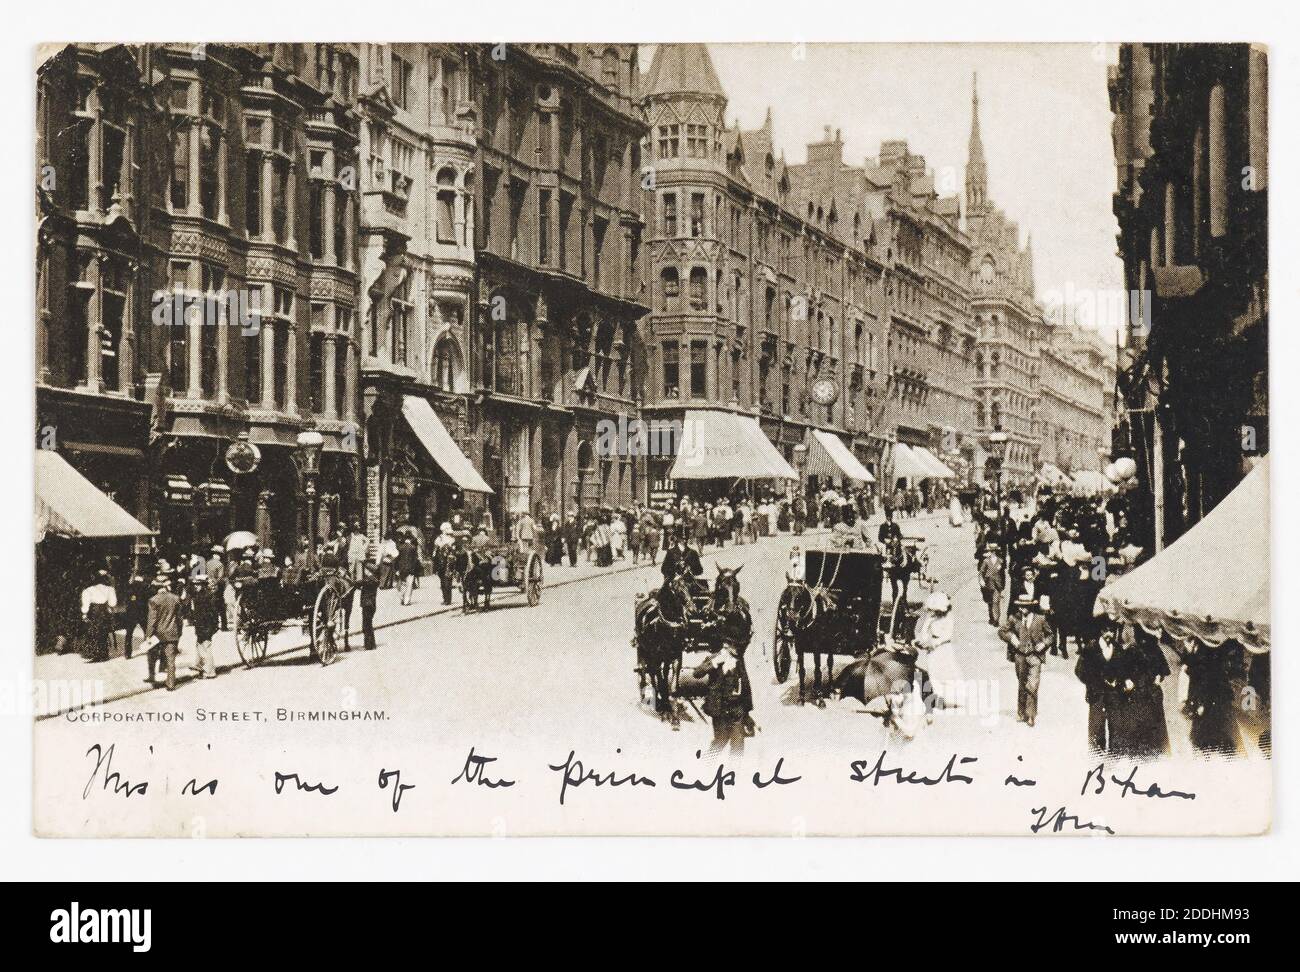 CORPORATION STREET, BIRMINGHAM.
This is one of the principal streets in B'ham
alamy
Image ID: 2DDHM93
www.alamy.com